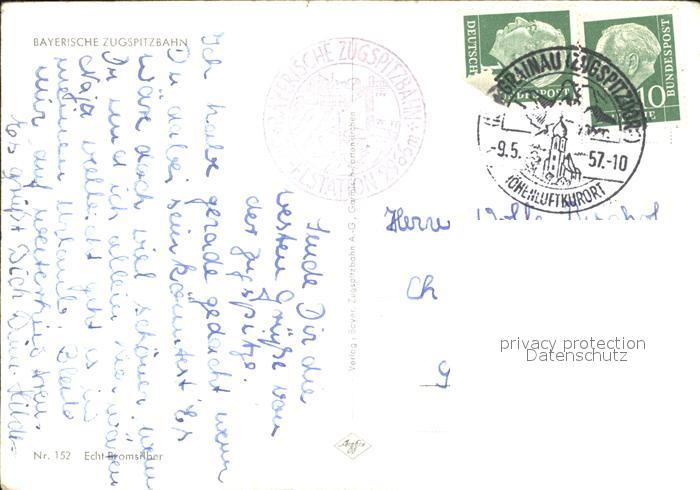 BAYERISCHE ZUGSPITZBAHN
Sende Dir die
besten Grüße von
der Zugspitze.
Ich habe gerade gedacht wenn
Du dabei sein könntest. Es
wäre doch viel schöner, wenn
Du und ich allein hier wären
Naja vielleicht geht es in
meinem Urlaub. Bleib
mir auf weiterhin treu.
Es grüßt Dich Deine
Nr. 152 Echt Bromsilber
BAYERISCHE ZUGSPITZBAHN
2950 m
Verlag: Bayer. Zugspitzbahn A.-G., Garmisch-Partenkirchen
Agfa
DEUTSCHE
BUNDESPOST
10
BUNDESPOST
GRAINAU (ZUGSPITZDORF)
-9.5.
57.-10
HÖHENLUFTKURORT
Herrn
Ch
G
privacy protection
Datenschutz